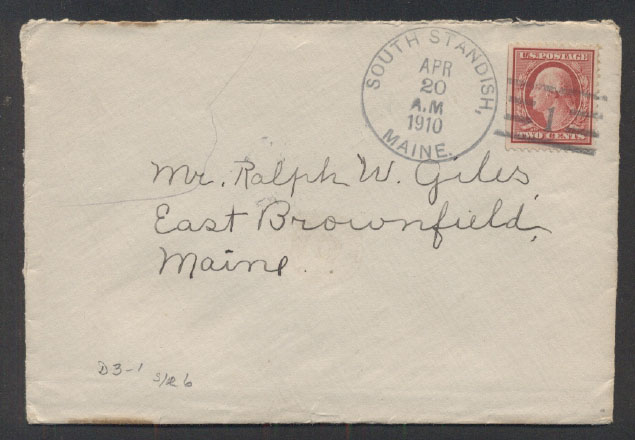 SOUTH STANDISH,
APR
20
A.M
1910
MAINE.
U.S. POSTAGE
1
TWO CENTS
Mr. Ralph W. Giles,
East Brownfield,
Maine.
D3-1